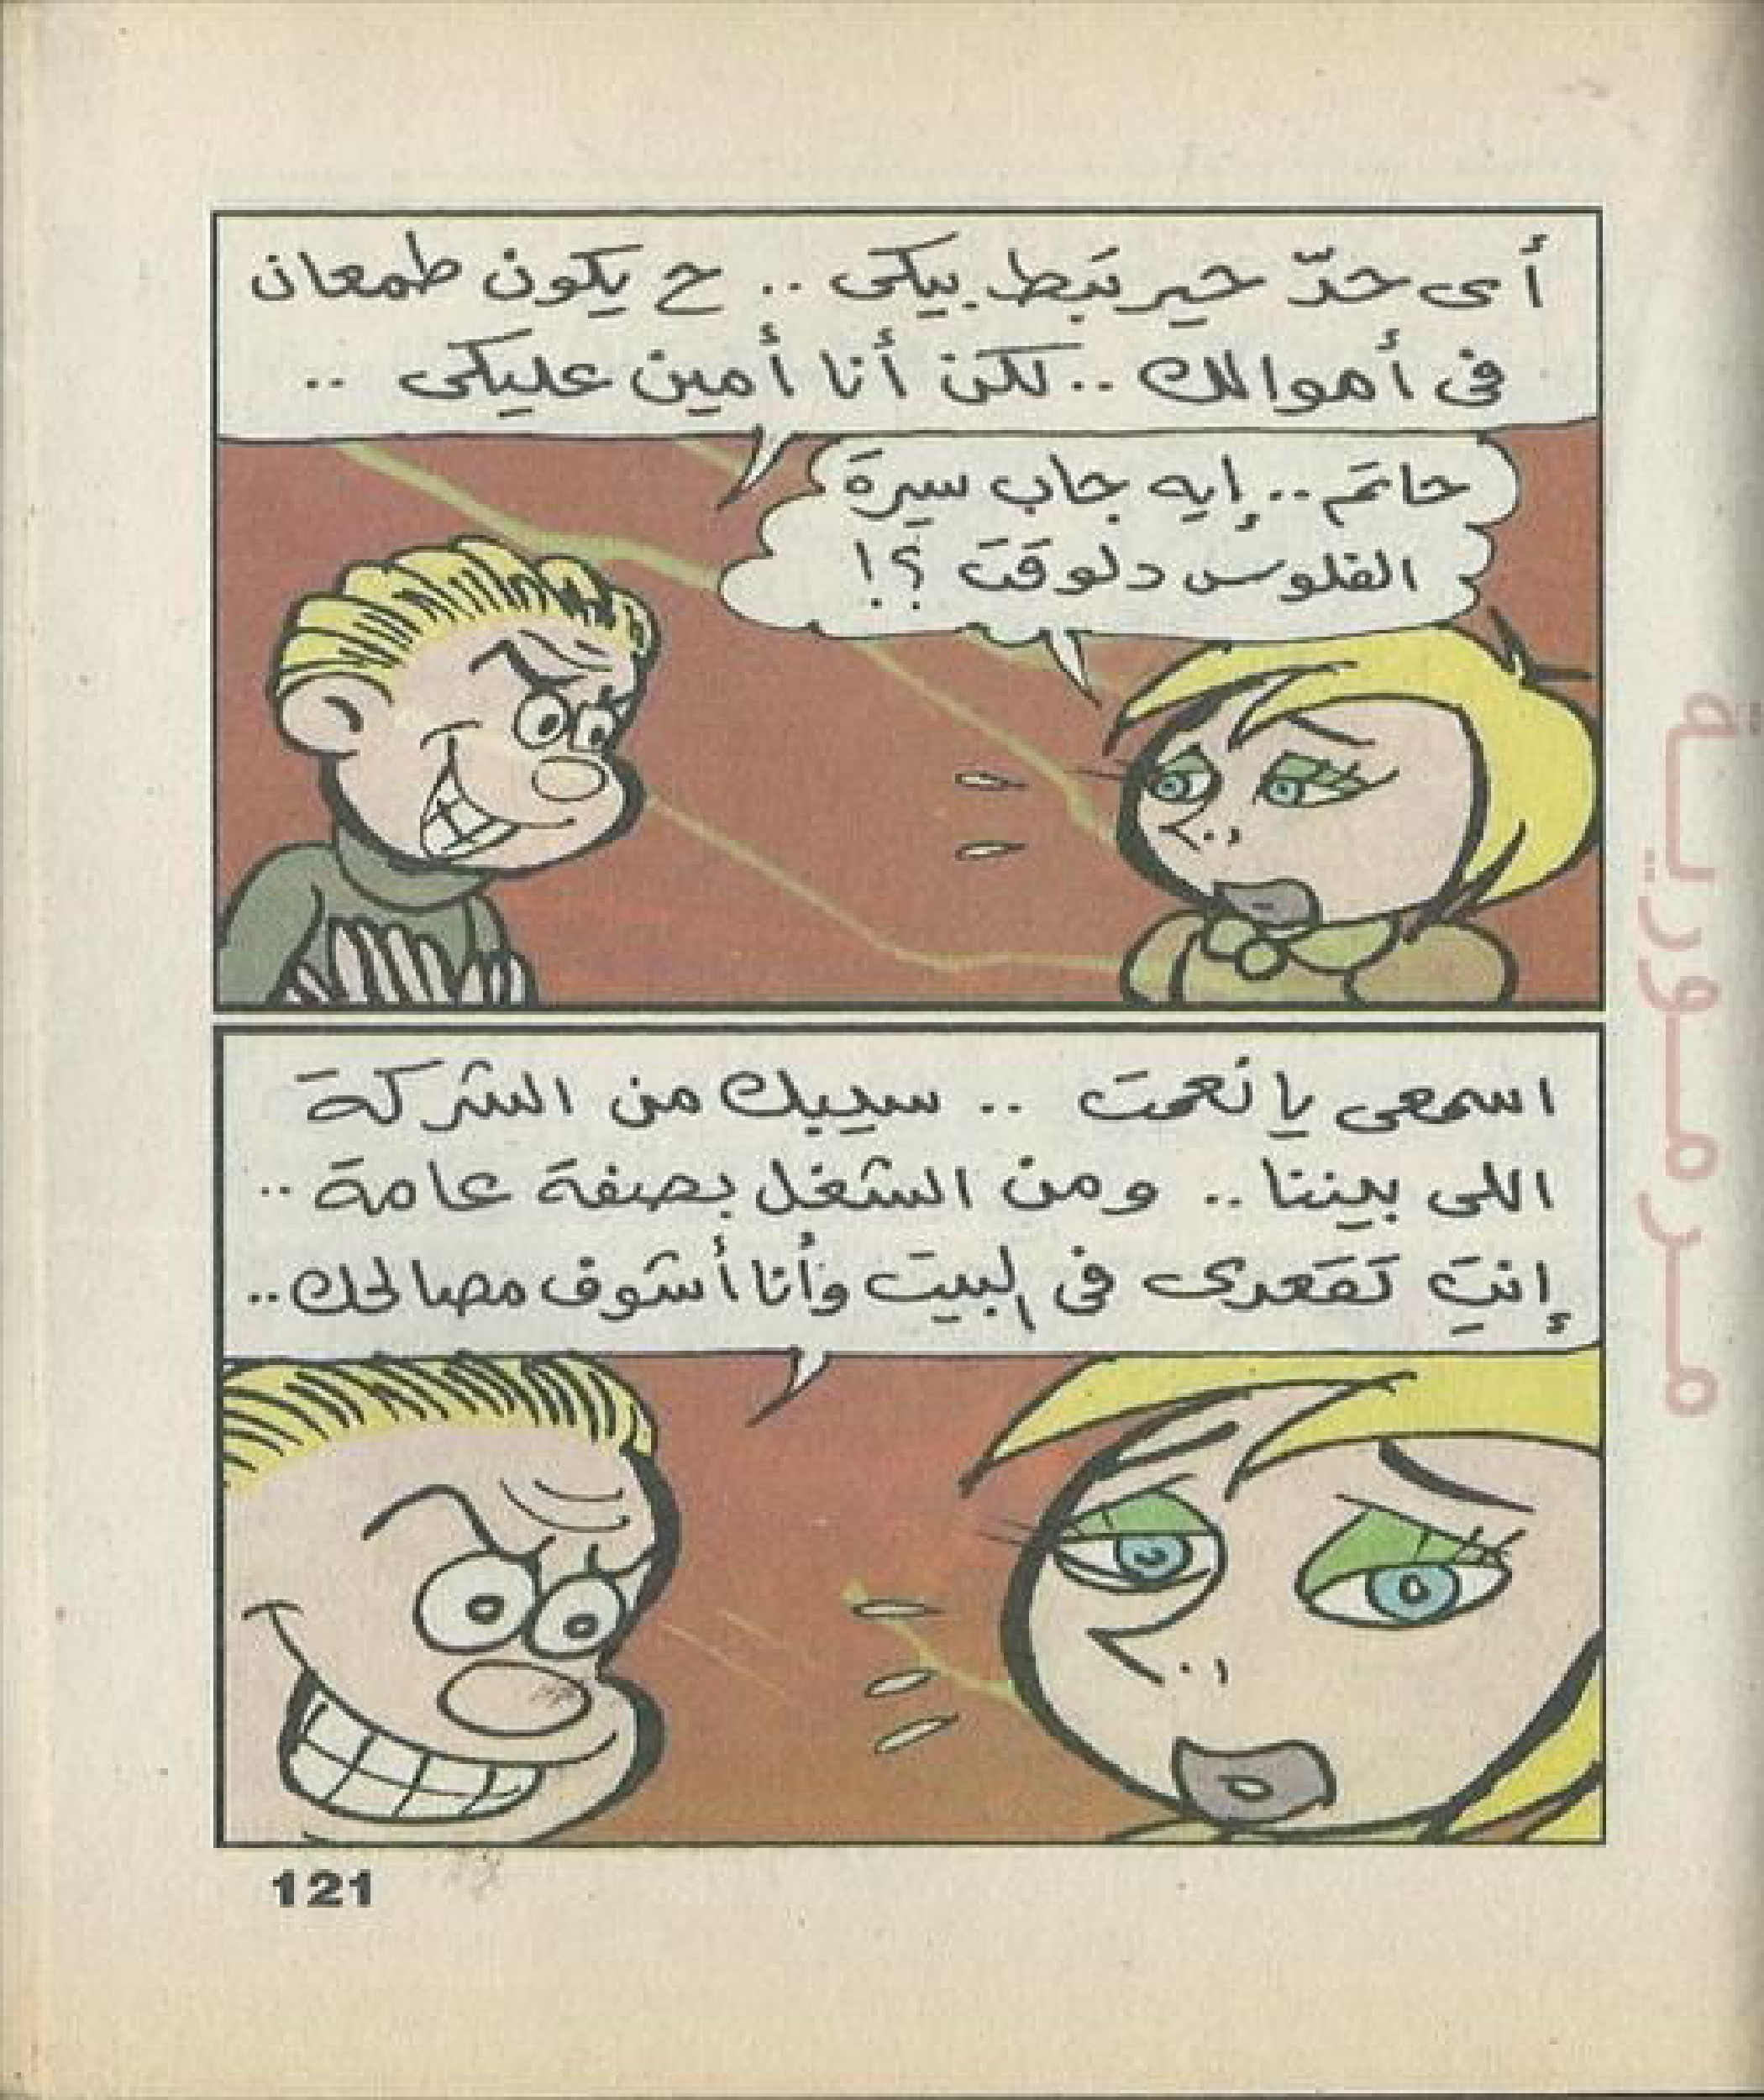 أى حدّ حيرتبط بيكى .. ح يكون طمعان
فى أموالك .. لكن أنا أمين عليكى ..
حاتم .. إيه جاب سيرة
الفلوس دلوقت ؟!
اسمعى يا نعمت .. سيبك من الشركة
اللى بيننا .. ومن الشغل بصفة عامة ..
إنتِ تقعدى فى البيت وأنا أشوف مصالحك ..
121
مرمورية